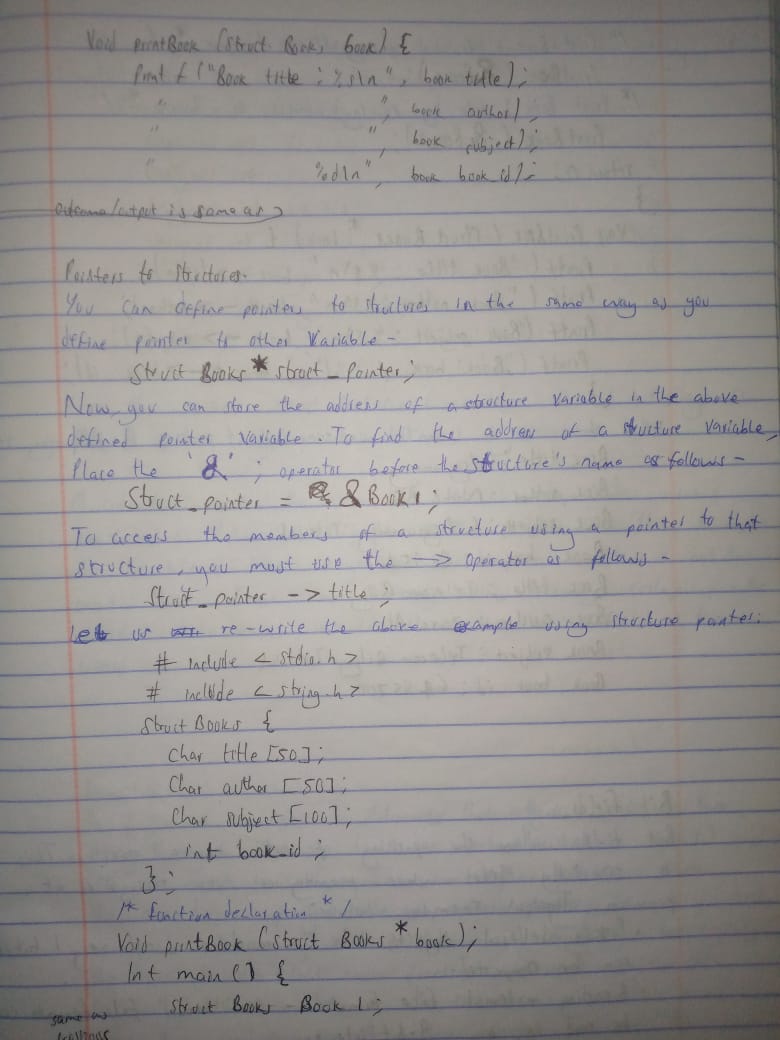 Void printBook (struct Books book) {
Printf ("Book title : %s\n", book title);
" ", book author);
" ", book subject);
%d\n", book book_id);
outcome/output is same as
Pointers to Structures.
You can define pointers to structures in the same way as you
define pointer to other Variable -
Struct Books * struct_pointer;
Now, you can store the address of a structure variable in the above
defined pointer variable. To find the address of a structure variable,
Place the '&'; operator before the structure's name as follows -
Struct_pointer = &Book1;
To access the members of a structure using a pointer to that
structure, you must use the -> operator as follows -
Struct_pointer -> title;
Let us re-write the above example using structure pointer.
# include < stdio.h >
# include < string.h >
Struct Books {
Char title [50];
Char author [50];
Char subject [100];
int book_id ;
};
/* function declaration */
Void printBook (struct Books * book);
Int main () {
Struct Books Book 1;
same as
previous